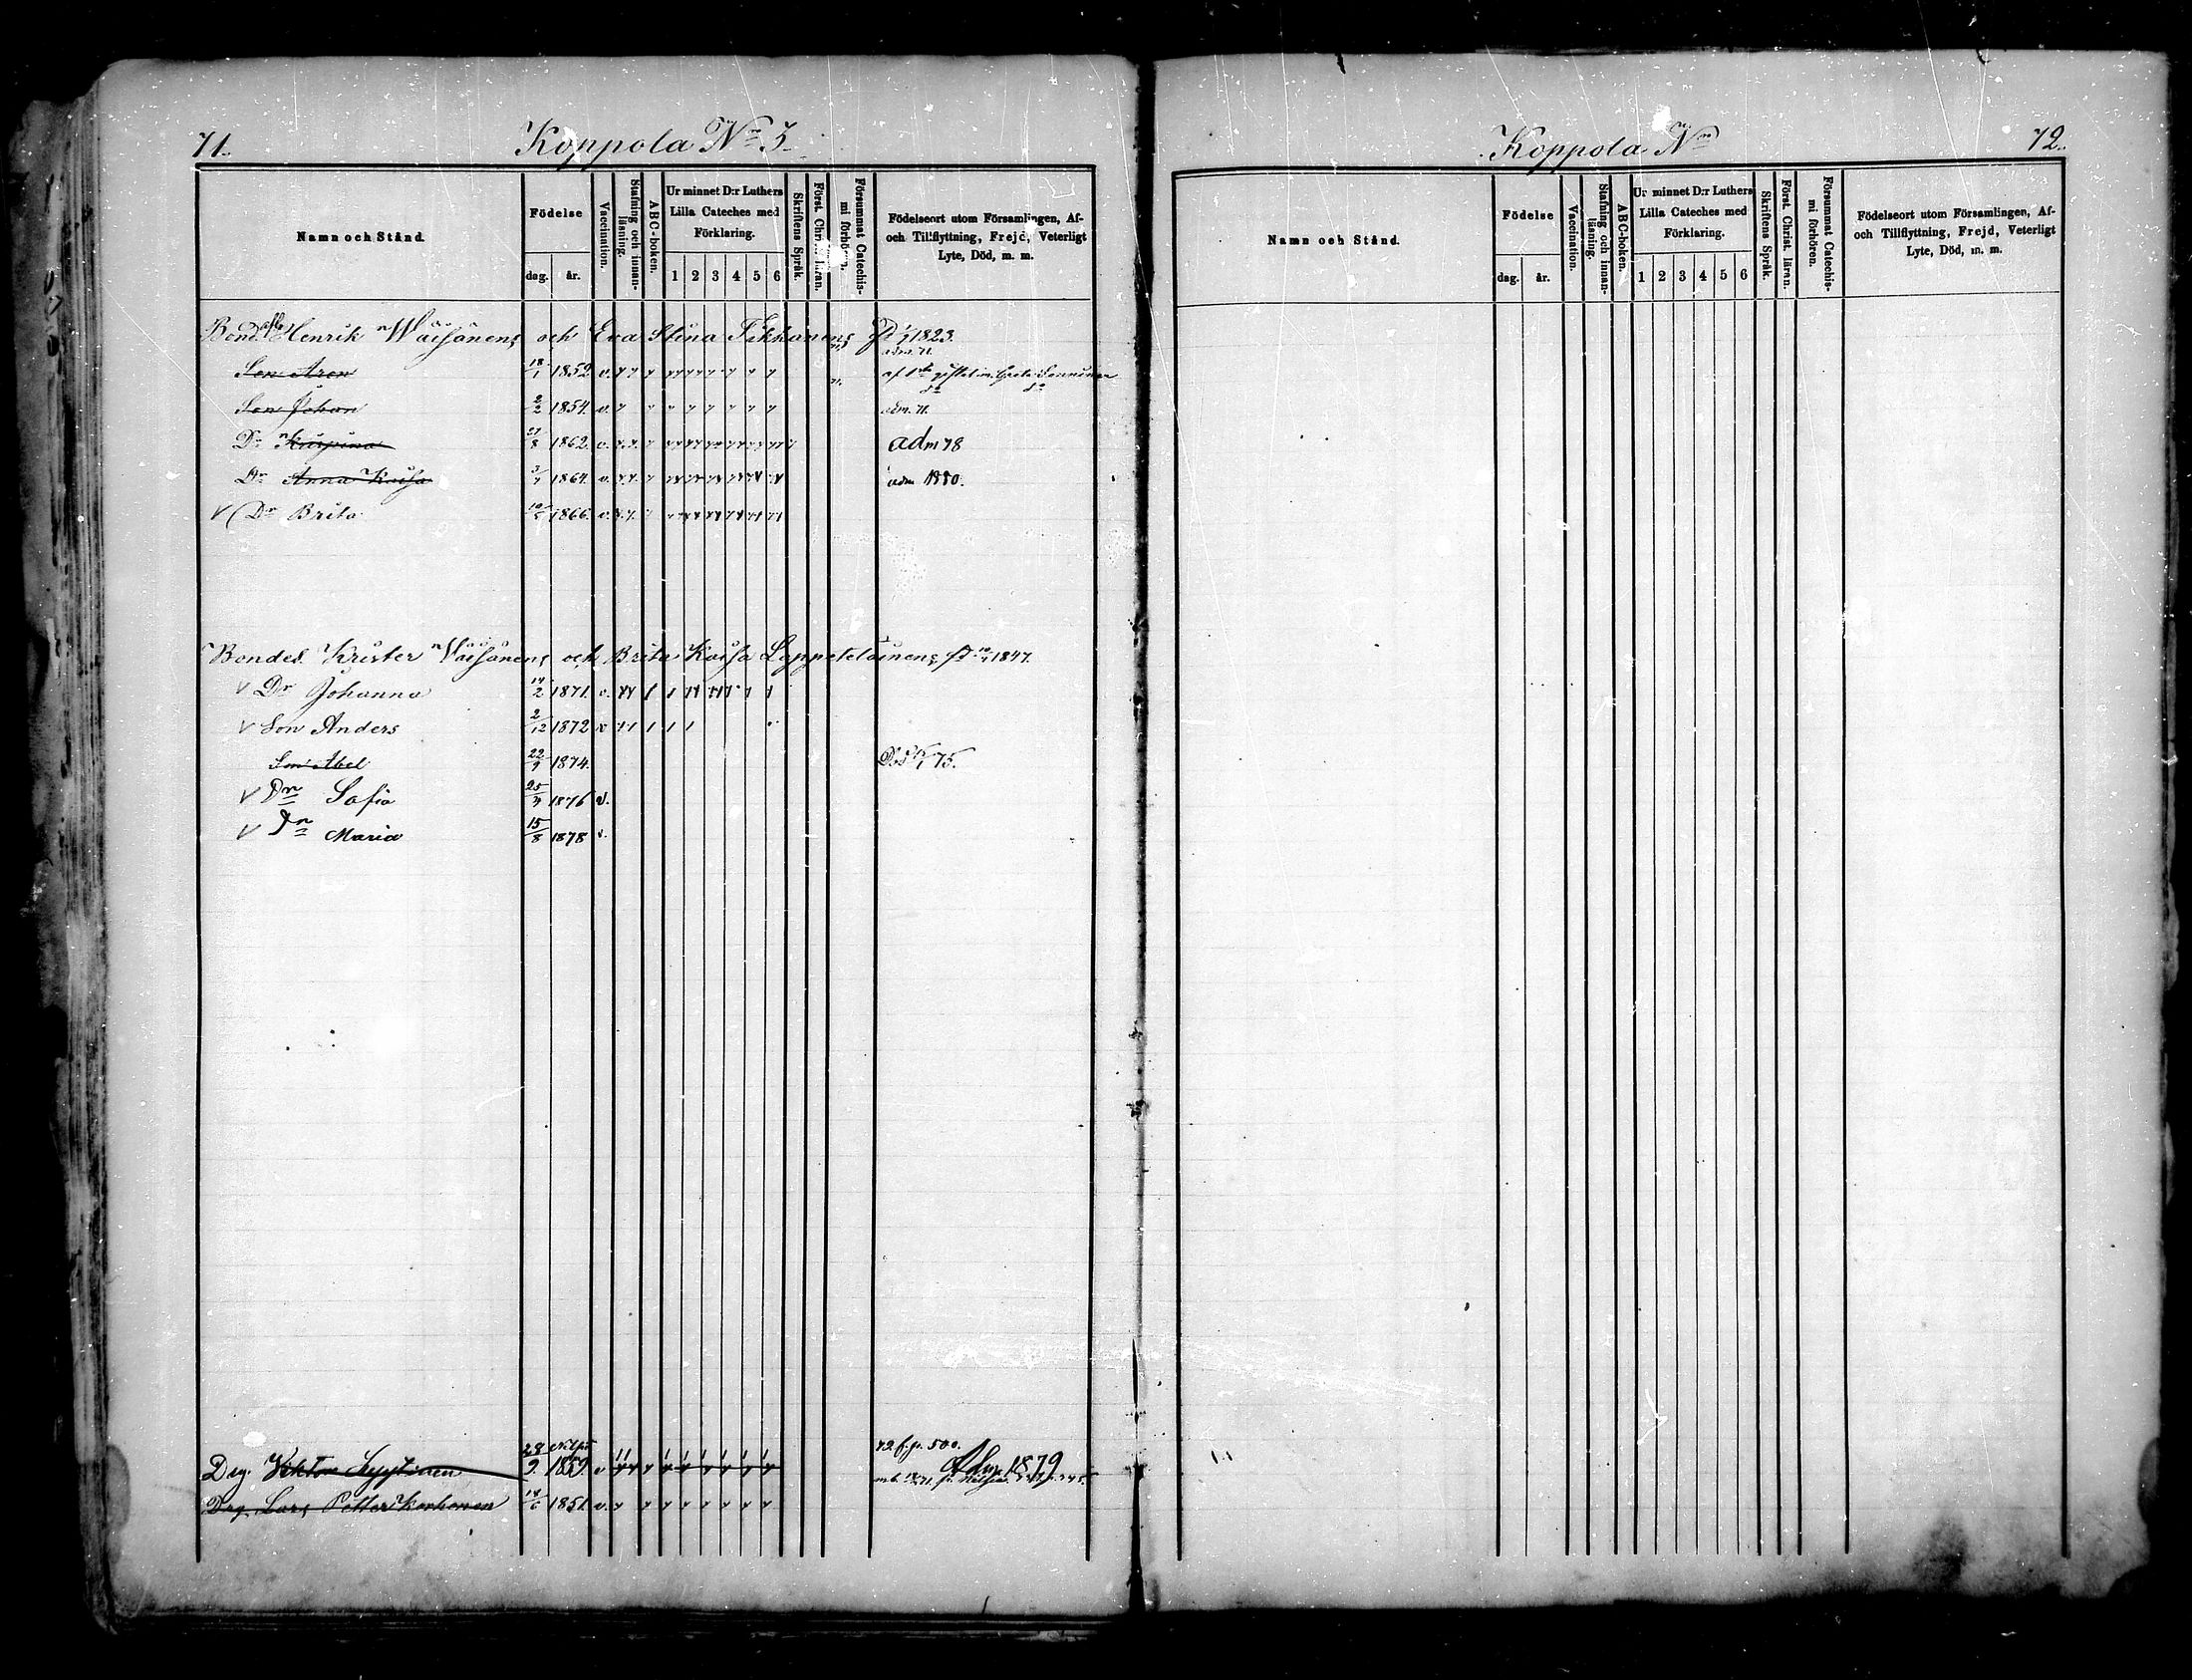 71.
Koppola No 3.
Namn och Stånd.
Födelse
dag.
år.
Vaccination.
Stafning och innan-
läsning.
ABC-boken.
Ur minnet D:r Luthers
Lilla Cateches med
Förklaring.
1 2 3 4 5 6
Skriftens Språk.
Först. Christ. läran.
Försummat Catechis-
mi förhören.
Födelseort utom Församlingen, Af-
och Tillflyttning, Frejd, Veterligt
Lyte, Död, m. m.
Henrik Wäisänens och Eva Stina 1823.
adm. 71.
Son Aron 18/1 1852. v.
Son Johan 2/2 1854. v. adm. 71.
Dr 27/8 1862. v. adm 78
Dr Anna Kaisa 3/7 1864. v. adm 1880.
V Dr Brita 1866. v.
Bondes. Krister Wäisänens och Brita Kaisa Lappetelainens 1847.
V Dr Johanna 14/2 1871. v.
V Son Anders 2/12 1872 v
Son Abel 22/9 1874. Död 75.
V Dr Sofia 25/3 1876 v.
V Dr Maria 15/8 1878 v.
Drg. Viktor Lyytinen 28/9 1859. v Adm. 1879
Drg. Lars Petter Korhonen 14/6 1851. v.
Koppola No
72.
Namn och Stånd.
Födelse
dag.
år.
Vaccination.
Stafning och innan-
läsning.
ABC-boken.
Ur minnet D:r Luthers
Lilla Cateches med
Förklaring.
1 2 3 4 5 6
Skriftens Språk.
Först. Christ. läran.
Försummat Catechis-
mi förhören.
Födelseort utom Församlingen, Af-
och Tillflyttning, Frejd, Veterligt
Lyte, Död, m. m.